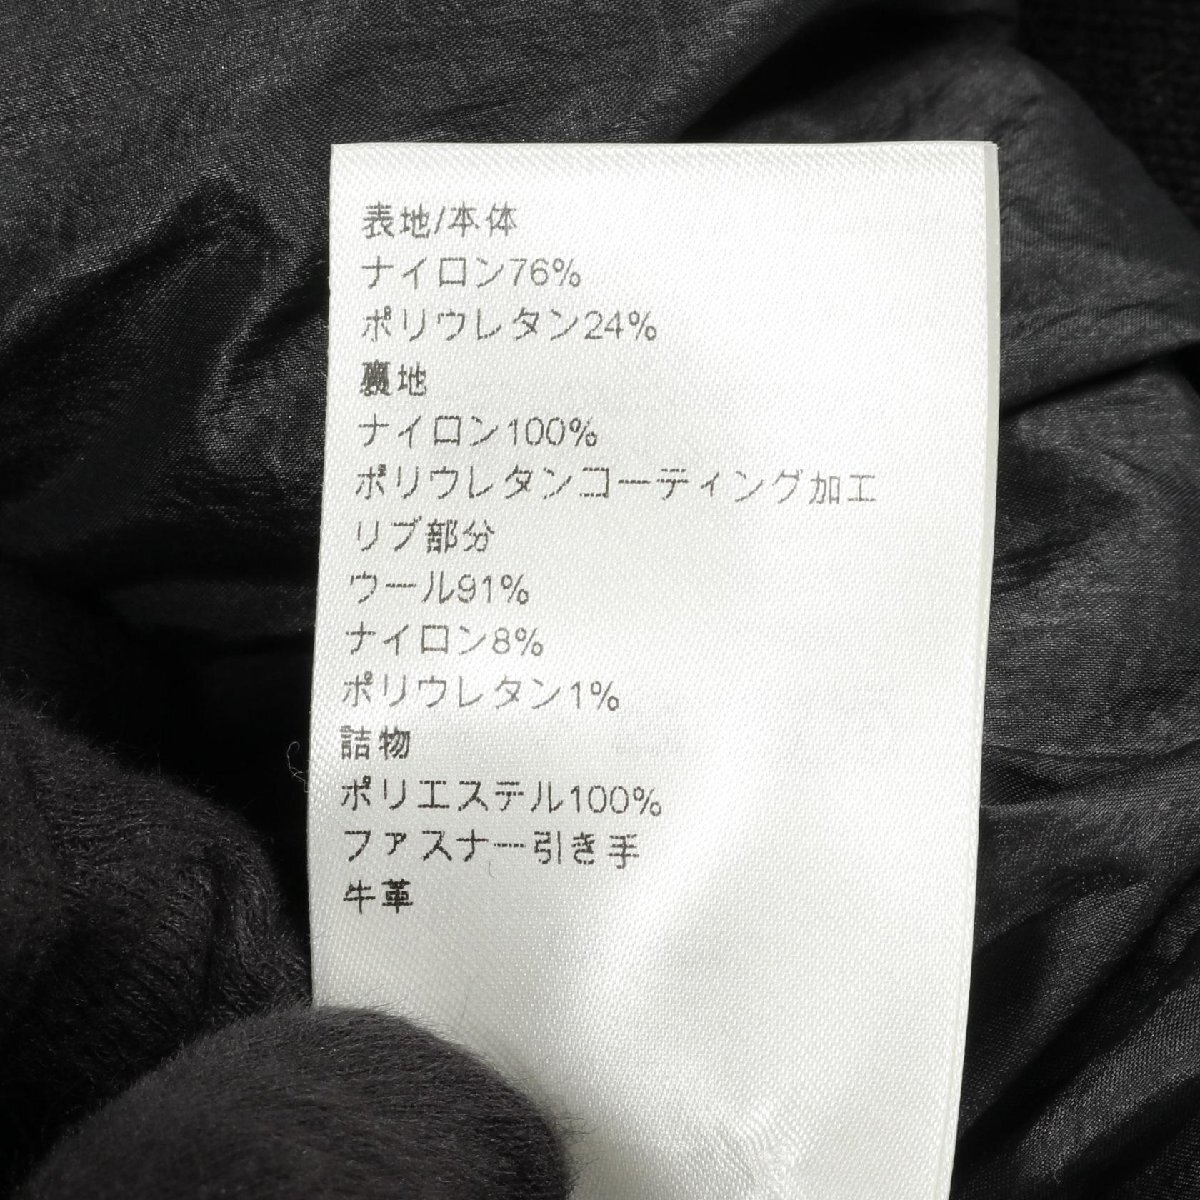 表地/本体
ナイロン76%
ポリウレタン24%
裏地
ナイロン100%
ポリウレタンコーティング加工
リブ部分
ウール91%
ナイロン8%
ポリウレタン1%
詰物
ポリエステル100%
ファスナー引き手
牛革